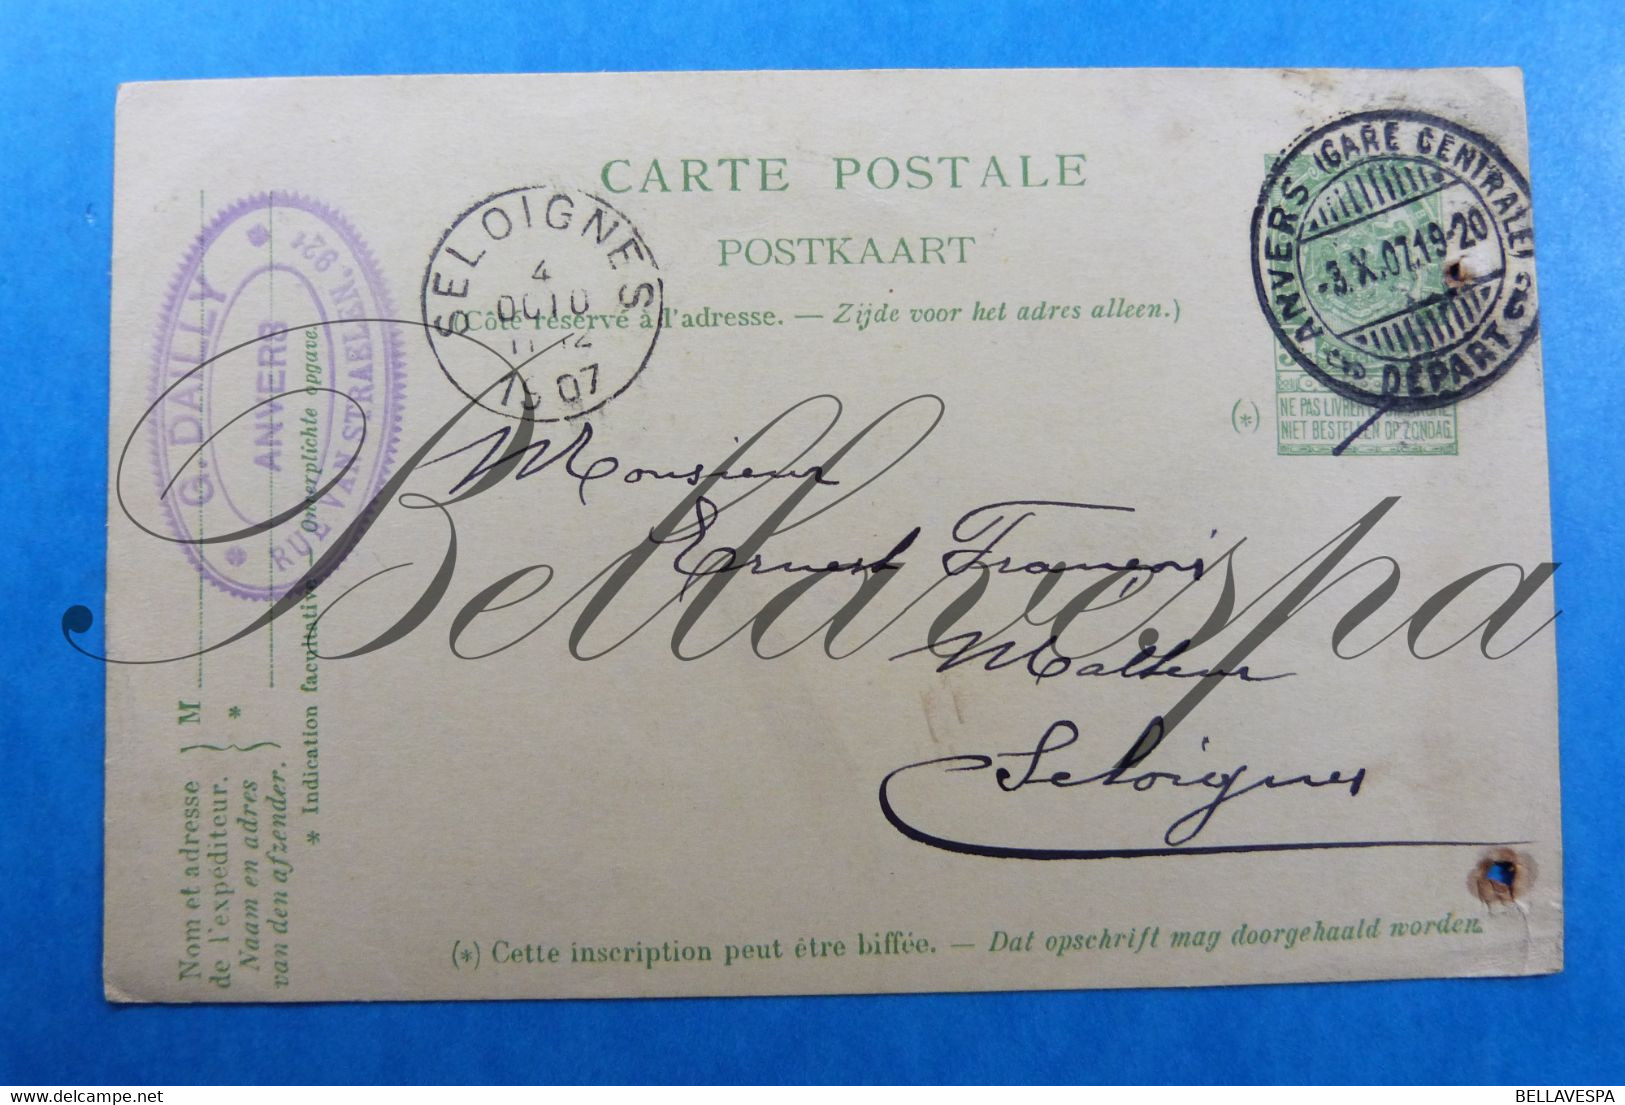 CARTE POSTALE
POSTKAART
(Côté réservé à l'adresse. — Zijde voor het adres alleen.)
ANVERS (GARE CENTRALE)
-3.X.07.19-20
DÉPART
SELOIGNES
4
OCTO
11-12
1907
(*)
NE PAS LIVRER LE DIMANCHE
NIET BESTELLEN OP ZONDAG.
Monsieur
Ernest François
Malteur
Seloignes
G. DAILLY
ANVERS
RUE VAN STRAELEN, 92
M
*
Nom et adresse
de l'expéditeur.
Naam en adres
van den afzender.
* Indication facultative. Onverplichte opgave.
(*) Cette inscription peut être biffée. — Dat opschrift mag doorgehaald worden.
Bellavespa
delcampe.net
BELLAVESPA